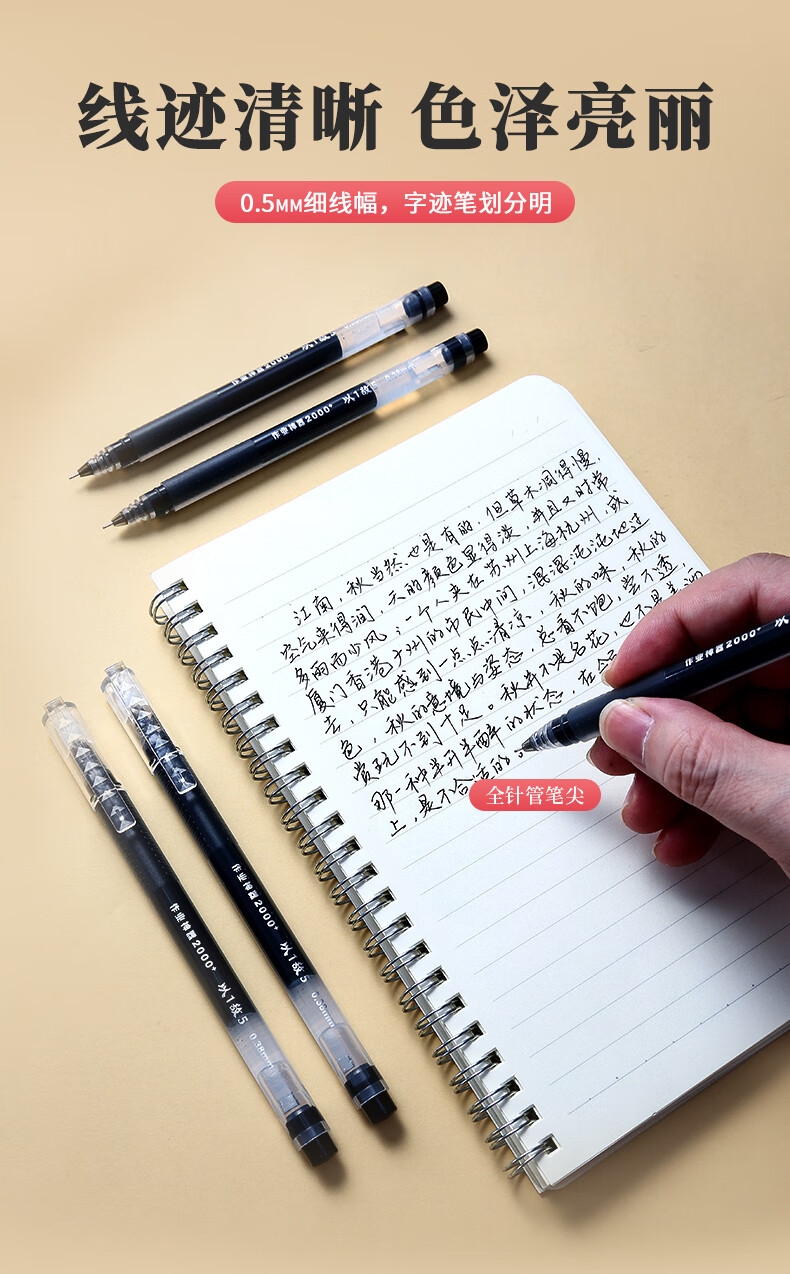 线迹清晰 色泽亮丽
0.5MM细线幅，字迹笔划分明
作业神器2000+ 以1敌5
作业神器2000+ 以1敌5 0.38mm
江南，秋当然也是有的，但草木凋得慢，
空气来得润，天的颜色显得淡，并且又时常
多雨而少风；一个人夹在苏州上海杭州，或
厦门香港广州的市民中间，混混沌沌地过
去，只能感到一点点清凉，秋的味，秋的
色，秋的意境与姿态，总看不饱，尝不透，
赏玩不到十足。秋并不是名花，也不是美酒
那一种半开半醉的状态，在
上，是不合适的。
作业神器2000+ 以
全针管笔尖
作业神器2000+ 以1敌5 0.38mm
作业神器2000+ 以1敌5 0.38mm